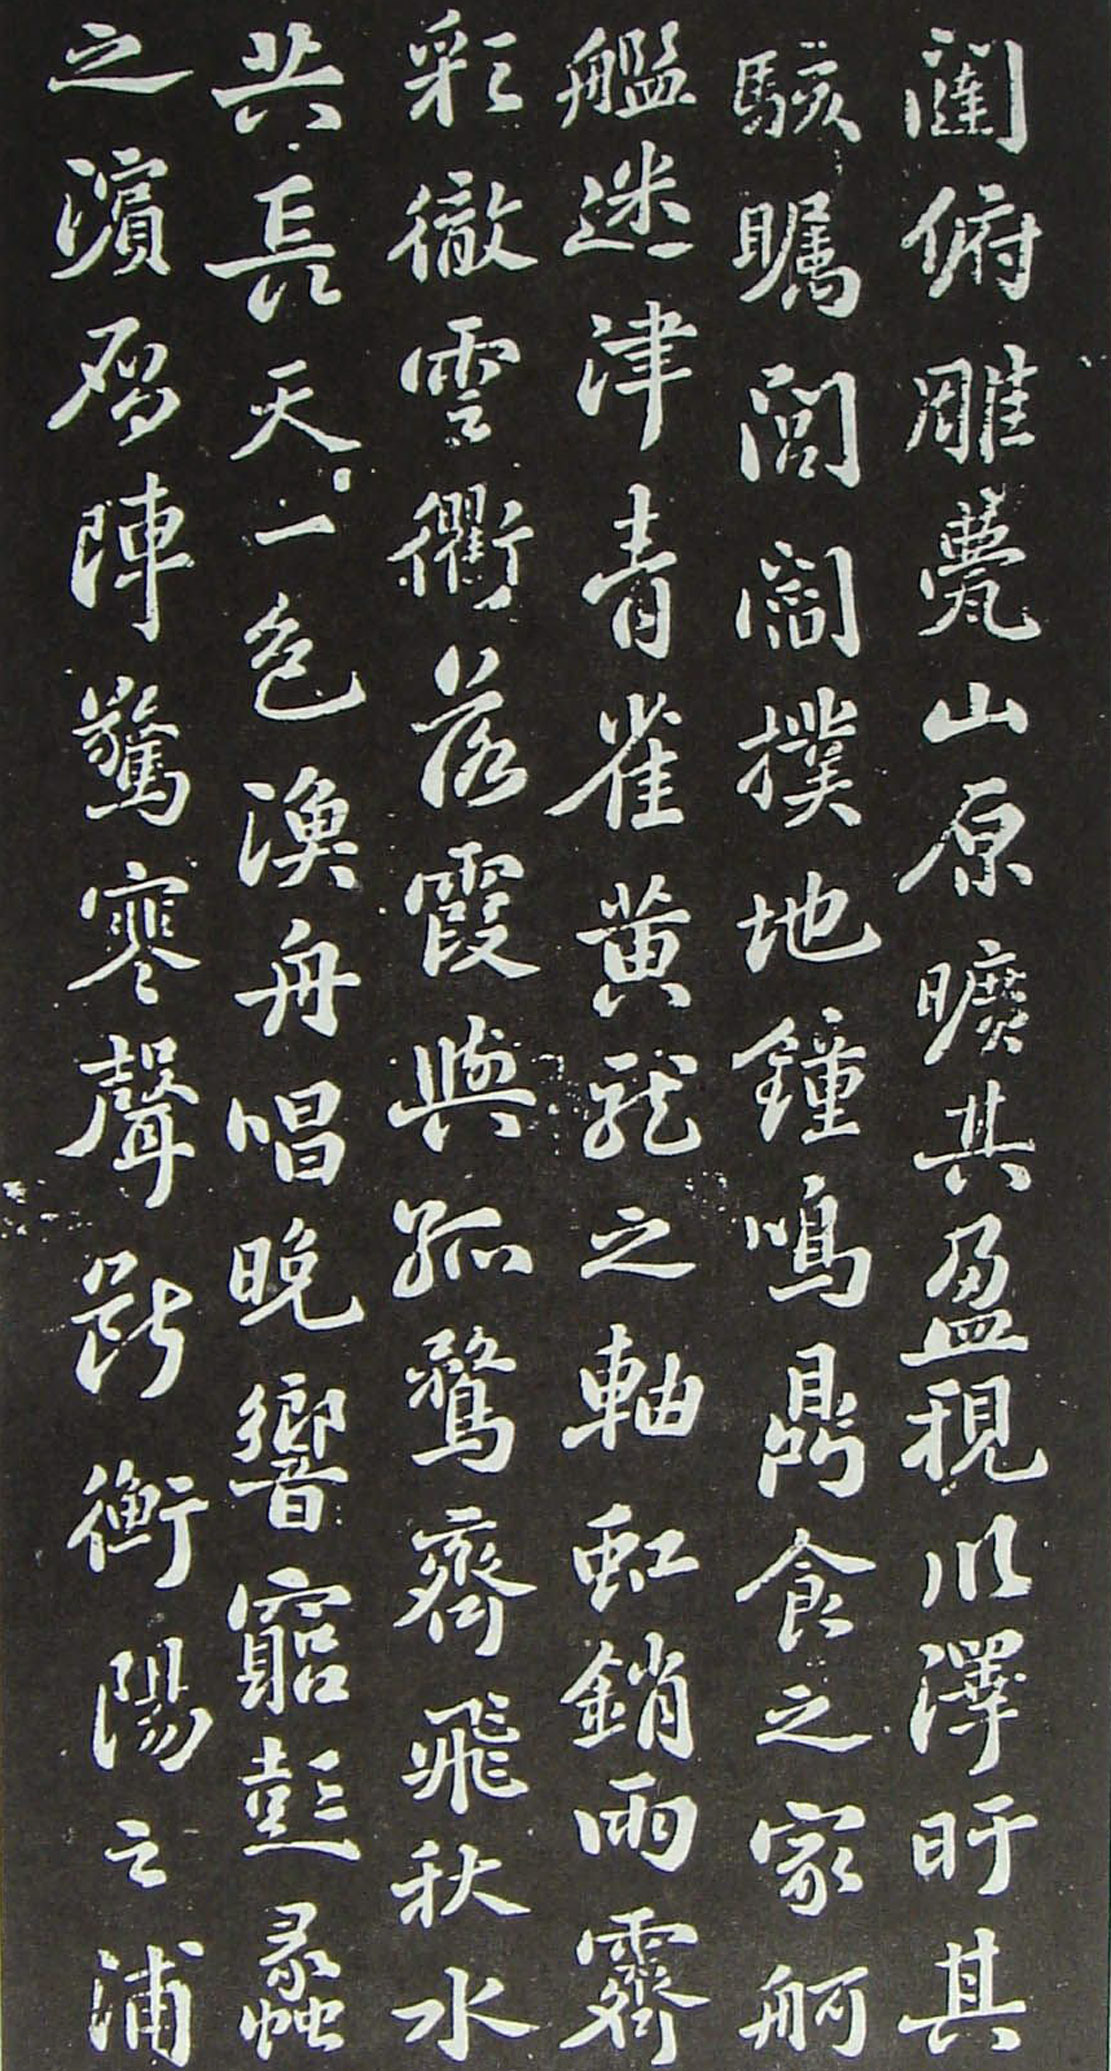 闥俯雕甍山原曠其盈視川澤盱其
駭矚閭閻撲地鐘鳴鼎食之家舸
艦迷津青雀黃龍之軸虹銷雨霽
彩徹雲衢落霞與孤鶩齊飛秋水
共長天一色漁舟唱晚響窮彭蠡
之濱鴈陣驚寒聲斷衡陽之浦